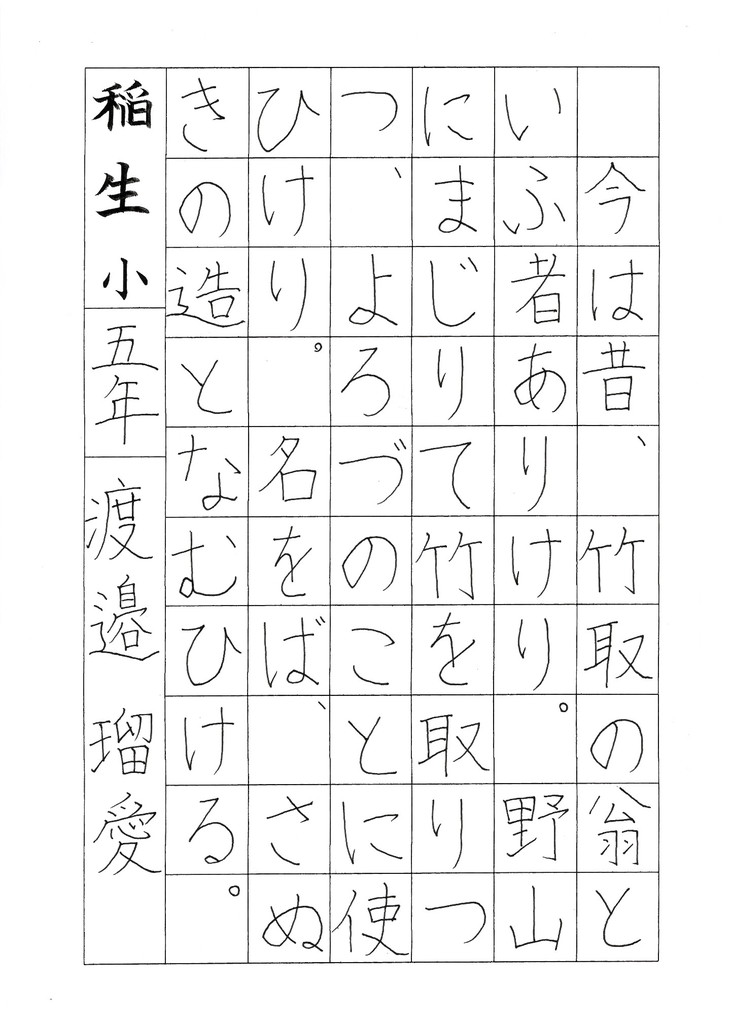 今は昔、竹取の翁と
いふ者ありけり。野山
にまじりて竹を取りつ
つ、よろづのことに使
ひけり。名をば、さぬ
きの造となむひける。
稲生小 五年 渡邉 瑠愛